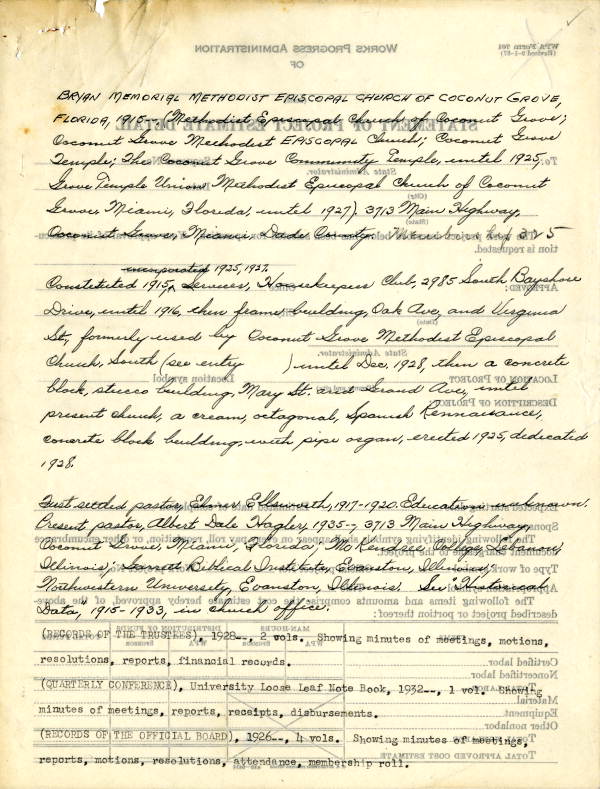 BRYAN MEMORIAL METHODIST EPISCOPAL CHURCH OF COCONUT GROVE,
FLORIDA, 1915--, (Methodist Episcopal Church of Coconut Grove;
Coconut Grove Methodist EPISCOPAL Church; Coconut Grove
Temple; The Coconut Grove Community Temple, until 1925,
Grove Temple Union Methodist Episcopal Church of Coconut
Grove, Miami, Florida, until 1927). 3713 Main Highway,
Coconut Grove, Miami, Dade County. Membership 325
incorporated 1925, 1927.
Constituted 1915, Services, Housekeepers Club, 2985 South Bayshore
Drive, until 1916, then frame building, Oak Ave, and Virginia
St, formerly used by Coconut Grove Methodist Episcopal
Church, South (see entry ) until Dec. 1928, then a concrete
block, stucco building, Mary St. and Grand Ave, until
present church, a cream, octagonal, Spanish Rennaisance,
concrete block building, with pipe organ, erected 1925, dedicated
1928.
First settled pastor, Elmer Ellsworth, 1917-1920. Education unknown.
Present pastor, Albert Dale Hagler, 1935--, 3713 Main Highway,
Coconut Grove, Miami, Florida; McKendree College, Lebanon,
Illinois; Garrett Biblical Institute, Evanston, Illinois;
Northwestern University, Evanston, Illinois. See: Historical
Data, 1915-1933, in church office.
(RECORDS OF THE TRUSTEES), 1928--, 2 vols. Showing minutes of meetings, motions,
resolutions, reports, financial records.
(QUARTERLY CONFERENCE), University Loose Leaf Note Book, 1932--, 1 vol. Showing
minutes of meetings, reports, receipts, disbursements.
(RECORDS OF THE OFFICIAL BOARD), 1926--, 4 vols. Showing minutes of meetings,
reports, motions, resolutions, attendance, membership roll.